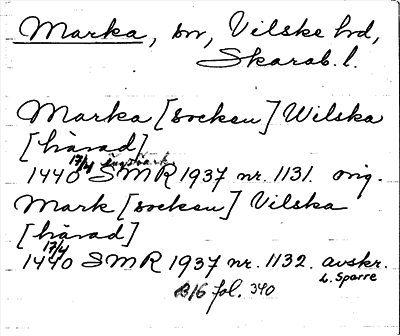 Marka, sn, Vilske hd,
Skarab. l.
Marka [socken] Wilska
[härad]
17/4
1440 SMR 1937 nr. 1131. orig.
Mark [socken] Vilska
[härad]
17/4
1440 SMR 1937 nr. 1132. avskr.
L. Sparre
B16 fol. 340